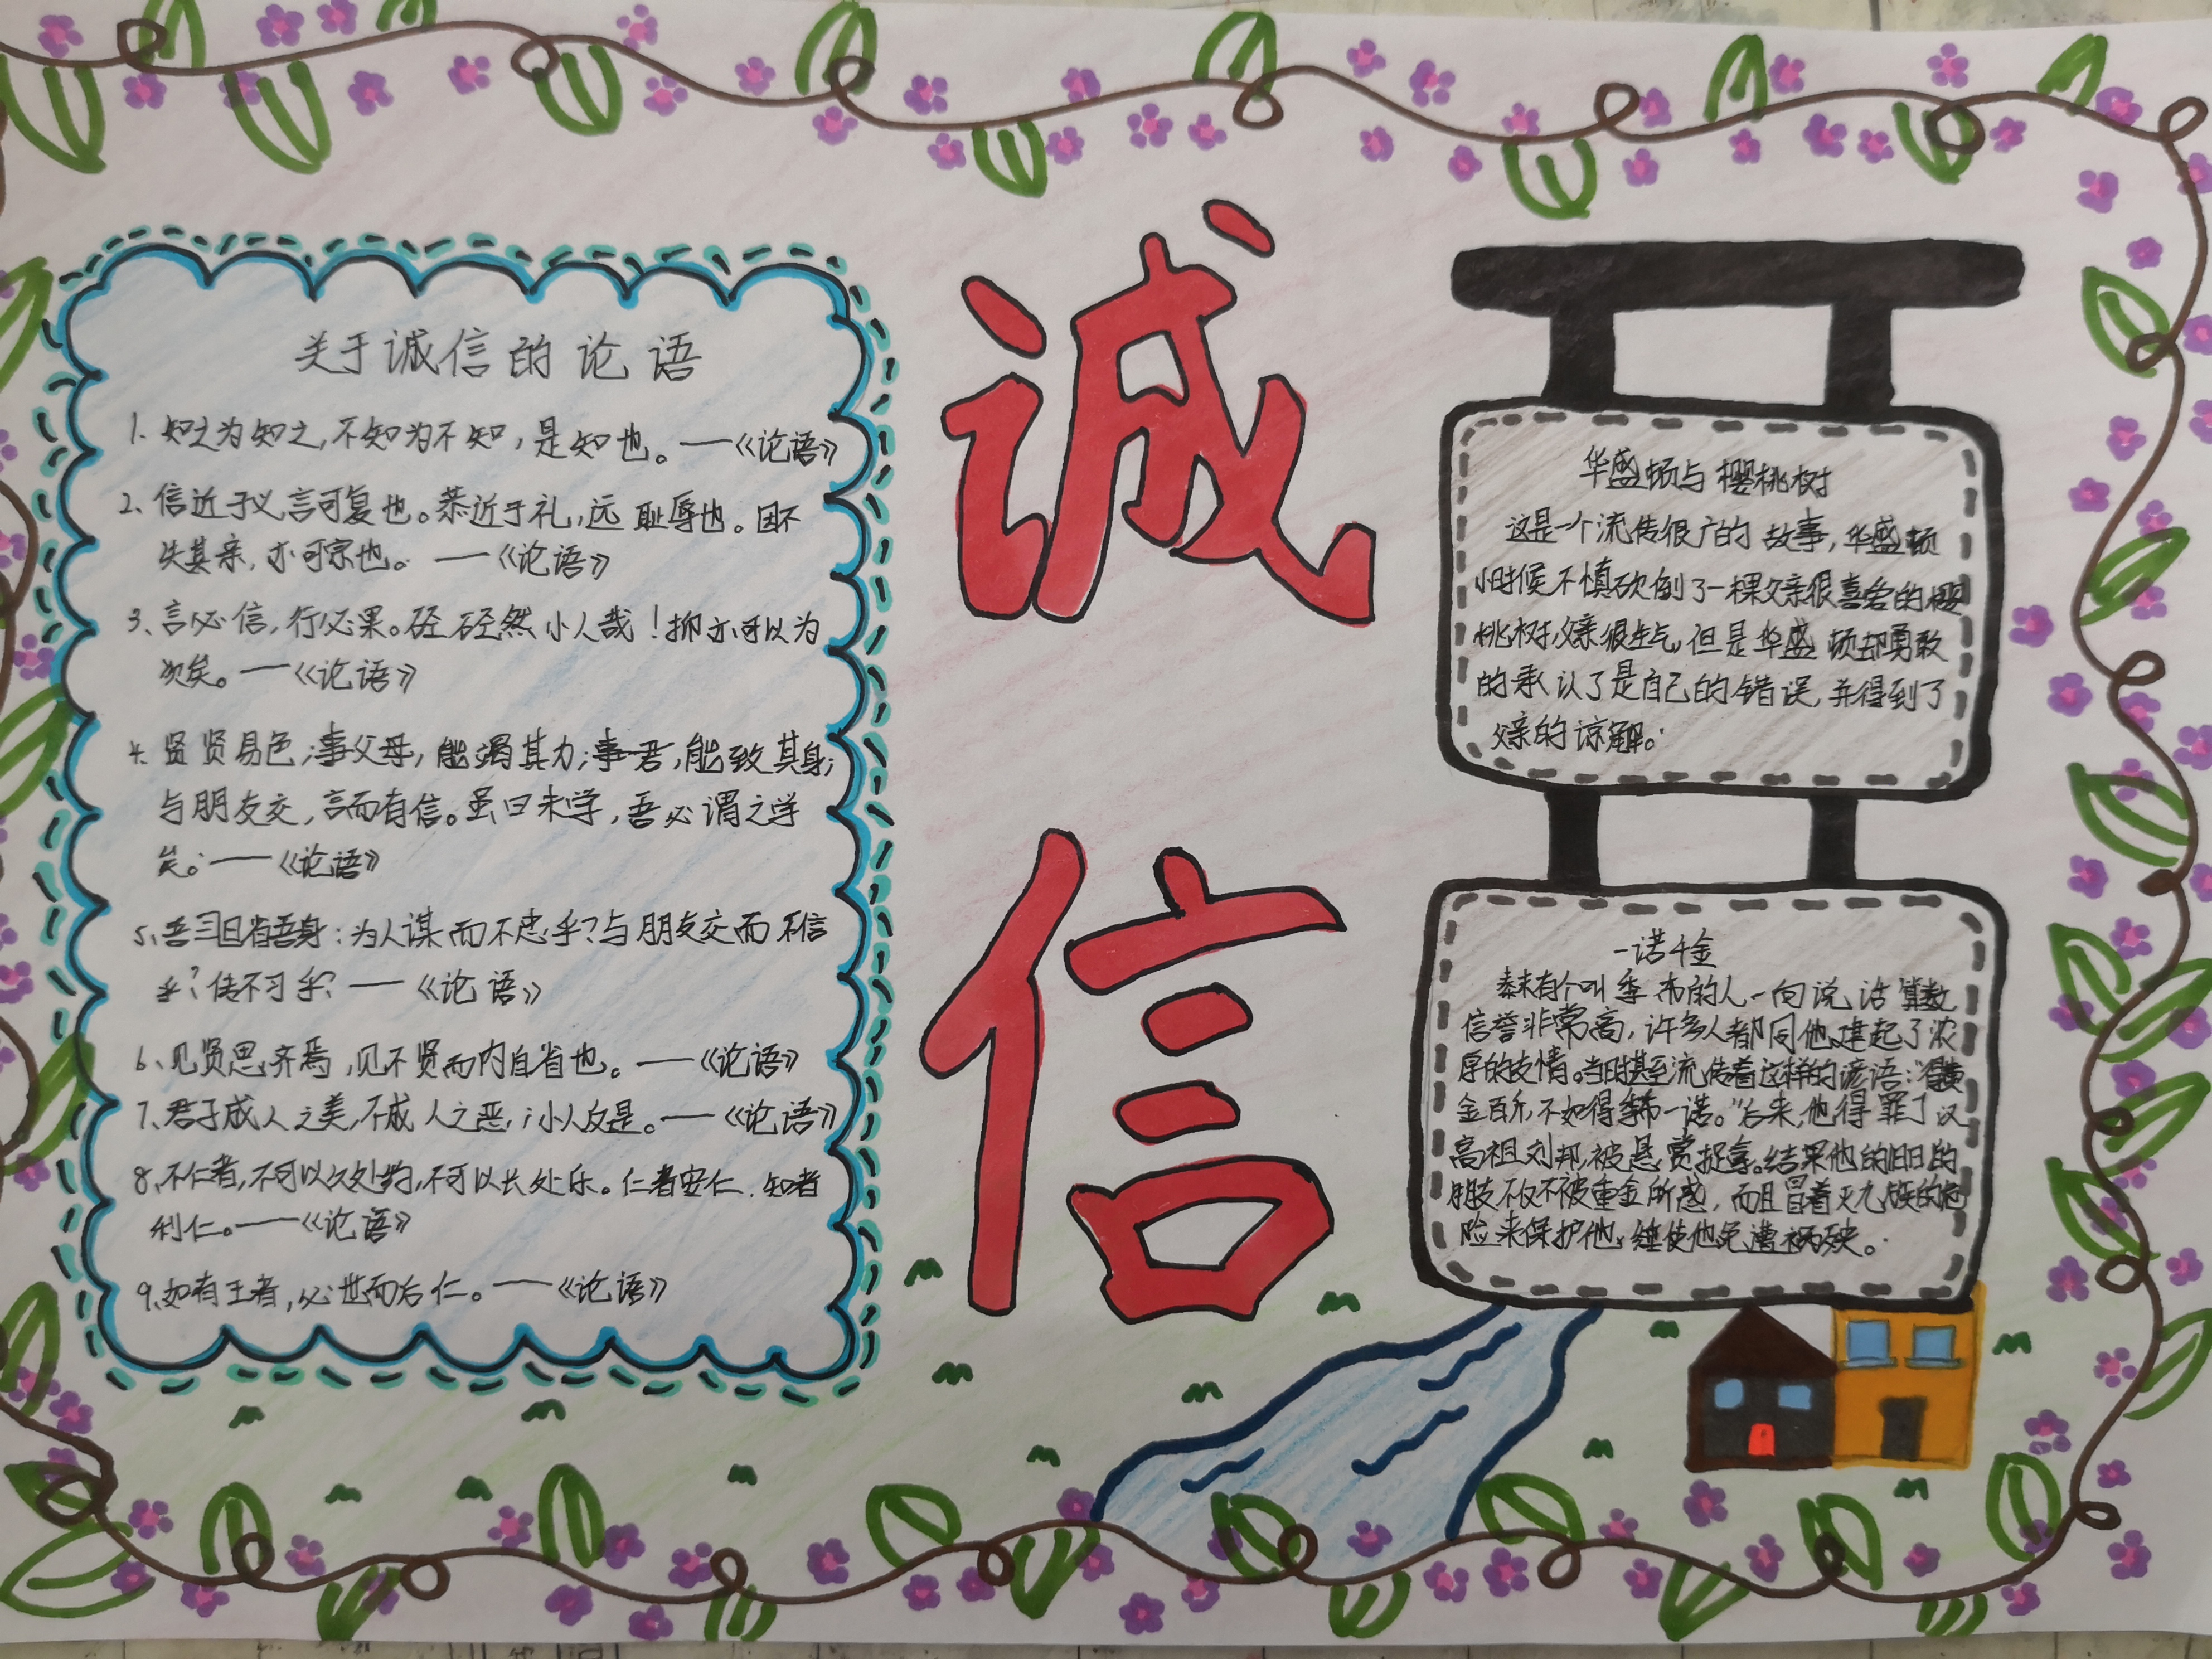 关于诚信的论语
1、知之为知之,不知为不知,是知也。——《论语》
2、信近于义,言可复也。恭近于礼,远耻辱也。因不
失其亲,亦可宗也。——《论语》
3、言必信,行必果。硁硁然小人哉!抑亦可以为
次矣。—《论语》
4、贤贤易色;事父母,能竭其力;事君,能致其身;
与朋友交,言而有信。虽曰未学,吾必谓之学
矣。——《论语》
5、吾三日省吾身:为人谋而不忠乎?与朋友交而不信
乎?传不习乎?——《论语》
6、见贤思齐焉,见不贤而内自省也。——《论语》
7、君子成人之美,不成人之恶,;小人反是。——《论语》
8、不仁者,不可以久处约,不可以长处乐。仁者安仁,知者
利仁。——《论语》
9、如有王者,必世而后仁。——《论语》
诚
信
华盛顿与樱桃树
这是一个流传很广的故事,华盛顿
小时候不慎砍倒了一棵父亲很喜爱的樱
桃树,父亲很生气,但是华盛顿却勇敢
的承认了是自己的错误,并得到了
父亲的谅解。
一诺千金
秦末有个叫季布的人,一向说话算数
信誉非常高,许多人都同他建起了浓
厚的友情。当时甚至流传着这样的谚语:“得黄
金百斤,不如得季布一诺。”后来,他得罪了汉
高祖刘邦,被悬赏捉拿。结果他的旧日的
朋友不仅不被重金所惑,而且冒着灭九族的危
险来保护他,使他免遭祸殃。